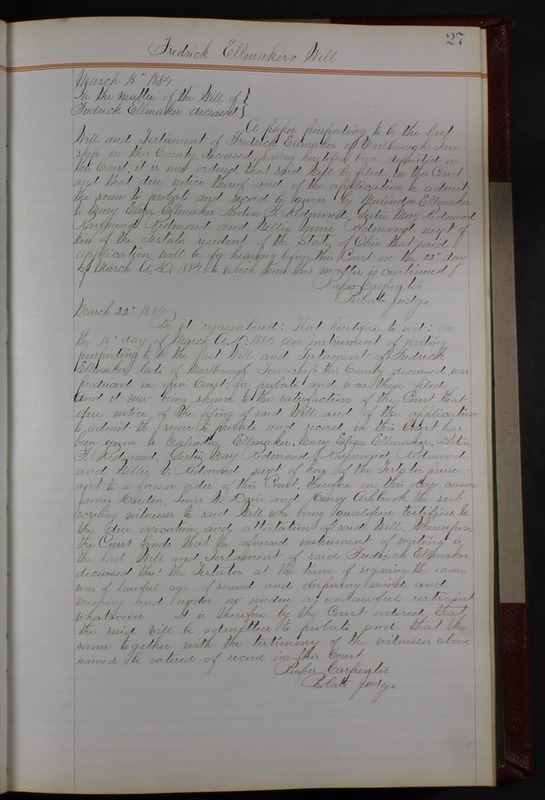 27
Fredrick Ellmakers Will
March 15" 1884
In the matter of the Will of }
Fredrick Ellmaker deceased }
A paper purporting to be the last
Will and Testament of Fredrick Ellmaker of Marlborough Town-
ship in this County deceased, having heretofore been deposited in
this Court, it is now ordered that said Will be filed in this Court
and that due notice thereof and of the application to admit
the same to probate and record be given to Malinda Ellmaker
to Mary Eliza Ellmaker F. Redmond, Gertie May Redmond
Raymond Redmond and Nellie Redmond next of
kin of the Testator resident of the State of Ohio that said
application will be for hearing before this Court on the 22" day
of March A.D. 1884 to which time this matter is continued
Carpenter
Probate Judge
March 22" 1884
Be it remembered: That heretofore to wit: on
the 15" day of March A.D. 1884 an instrument of writing
purporting to be the last Will and Testament of Fredrick
Ellmaker late of Marlborough Township this County deceased, was
produced in open Court for probate and was then filed
And it now being shown to the satisfaction of the Court that
due notice of the filing of said Will and of the application
to admit the same to probate and record in this Court has
been given to Malinda Ellmaker, Mary Eliza Ellmaker,
F. Redmond, Gertie May Redmond, Raymond Redmond
and Nellie V. Redmond next of kin of the Testator pursu-
ant to a former order of this Court, therefore on this day came
James and Henry the sub-
scribing witnesses to said Will who being qualified testified to
the due execution and attestation of said Will. Whereupon
the Court finds that the aforesaid instrument of writing is
the last Will and Testament of said Fredrick Ellmaker
deceased that the Testator at the time of signing the same
was of lawful age of sound and disposing mind and
memory and under no undue or unlawful restraint
whatsoever. It is therefore by the Court ordered, that
the said Will be admitted to probate and that the
same together with the testimony of the witnesses above
named be entered of record in this Court
Carpenter
Probate Judge